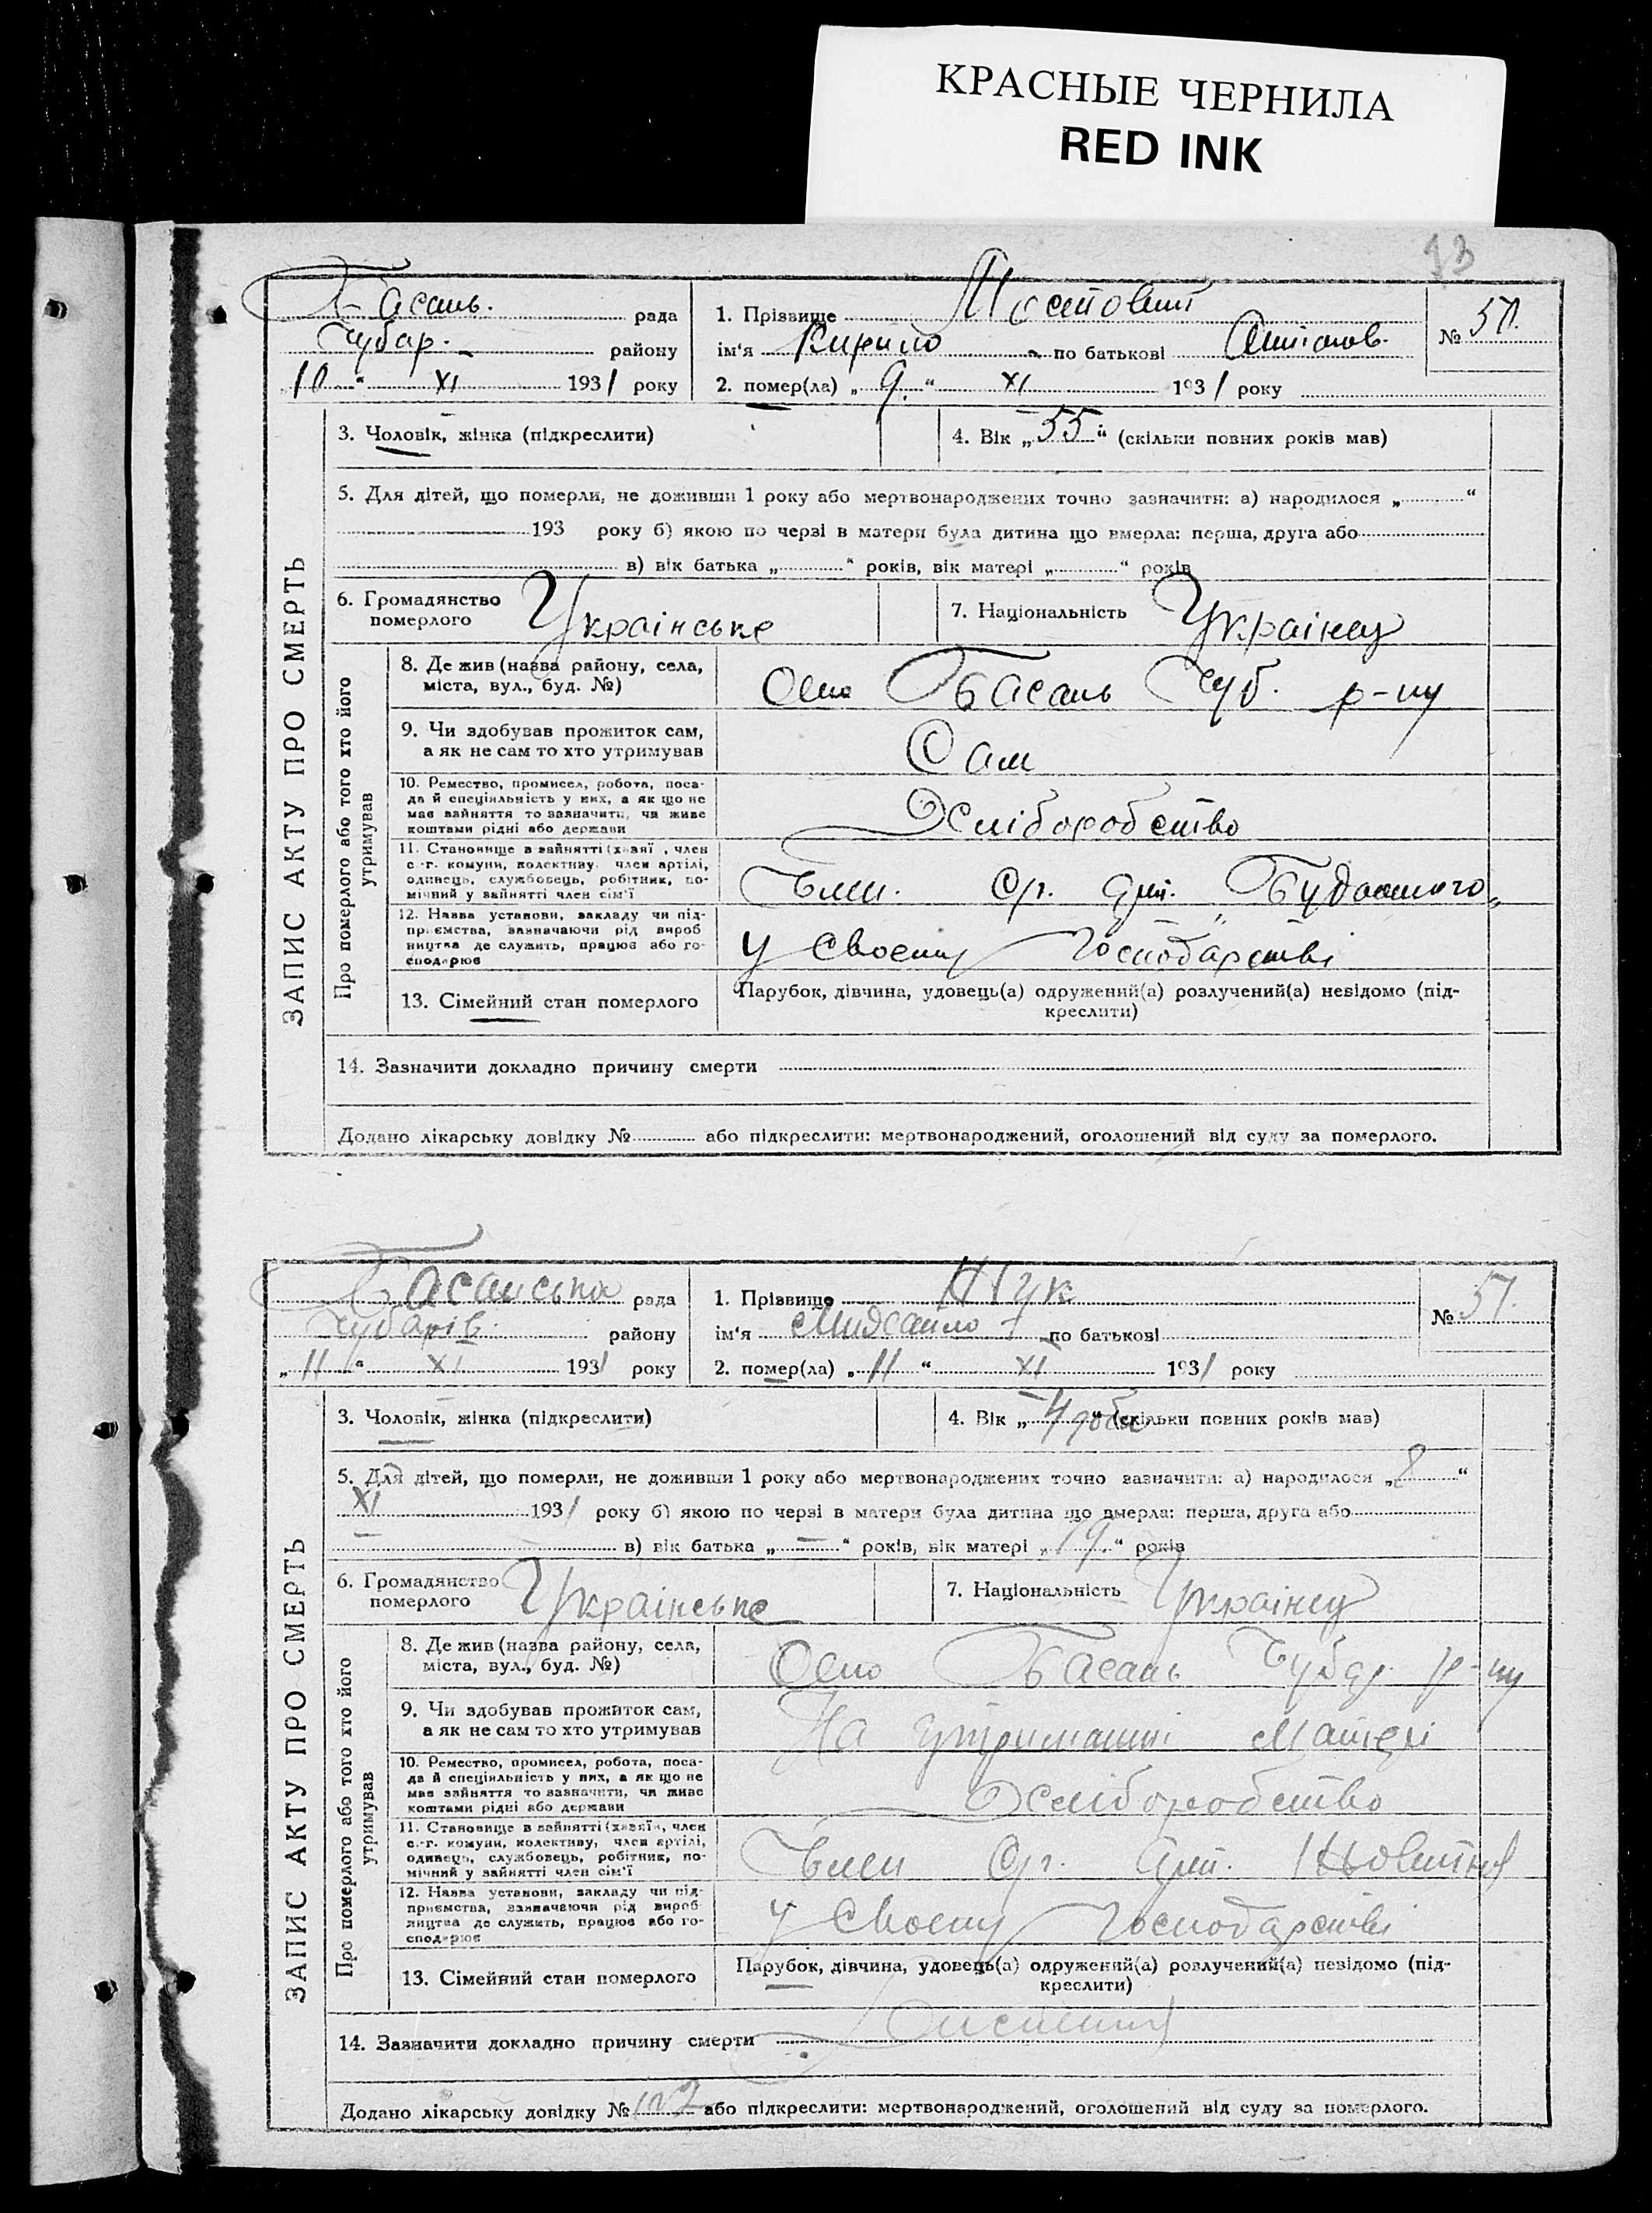 КРАСНЫЕ ЧЕРНИЛА
RED INK
93
Басань. рада
Чубар. району
„10“ XI 1931 року
1. Прізвище Мостовий
ім'я Кирило по батькові Антонов.
2. помер(ла) „9.“ XI 1931 року
№ 50.
3. Чоловік, жінка (підкреслити)
4. Вік „55“ (скільки повних років мав)
5. Для дітей, що померли, не доживши 1 року або мертвонароджених точно зазначити: а) народилося „ “
193 року б) якою по черзі в матери була дитина що вмерла: перша, друга або
в) вік батька „ “ років, вік матері „ “ років
6. Громадянство
померлого
Українське
7. Національність Українец
ЗАПИС АКТУ ПРО СМЕРТЬ
Про померлого або того хто його
утримував
8. Де жив (назва району, села,
міста, вул., буд. №)
Село Басань Чуб. р-ну
9. Чи здобував прожиток сам,
а як не сам то хто утримував
Сам
10. Ремество, промисел, робота, поса-
да й спеціяльність у них, а як що не
має зайняття то зазначити, чи живе
коштами рідні або держави
Хліборобство
11. Становище в зайнятті (хазяї, член
с.-г. комуни, колективу, член артілі,
одинець, службовець, робітник, по-
мічний у зайнятті член сім'ї
Член. Ср. Арт. Будьонного„
12. Назва установи, закладу чи під-
приємства, зазначаючи рід вироб
ництва де служить, працює або го-
сподарює
У своєму господарстві
13. Сімейний стан померлого
Парубок, дівчина, удовець(а) одружений(а) розлучений(а) невідомо (під-
креслити)
14. Зазначити докладно причину смерти
Додано лікарську довідку № або підкреслити: мертвонароджений, оголошений від суду за померлого.
Басанська рада
Чубарів. району
„11“ XI 1931 року
1. Прізвище
ім'я Михайло по батькові
2. помер(ла) „11“ XI 1931 року
№ 51.
3. Чоловік, жінка (підкреслити)
4. Вік „4 доби“ (скільки повних років мав)
5. Для дітей, що померли, не доживши 1 року або мертвонароджених точно зазначити: а) народилося „8“
XI 1931 року б) якою по черзі в матери була дитина що вмерла: перша, друга або
в) вік батька „—“ років, вік матері „19.“ років
6. Громадянство
померлого
Українське
7. Національність Українец
ЗАПИС АКТУ ПРО СМЕРТЬ
Про померлого або того хто його
утримував
8. Де жив (назва району, села,
міста, вул., буд. №)
Село Басань Чубар. р-ну
9. Чи здобував прожиток сам,
а як не сам то хто утримував
На утриманні Матері
10. Ремество, промисел, робота, поса-
да й спеціяльність у них, а як що не
має зайняття то зазначити, чи живе
коштами рідні або держави
Хліборобство
11. Становище в зайнятті (хазяїн, член
с.-г. комуни, колективу, член артілі,
одинець, службовець, робітник, по-
мічний у зайнятті член сім'ї
Член Ср. Арт.
12. Назва установи, закладу чи під-
приємства, зазначаючи рід вироб-
ництва де служить, працює або го-
сподарює
У своєму господарстві
13. Сімейний стан померлого
Парубок, дівчина, удовець(а) одружений(а) розлучений(а) невідомо (під-
креслити)
14. Зазначити докладно причину смерти
Додано лікарську довідку № або підкреслити: мертвонароджений, оголошений від суду за померлого.